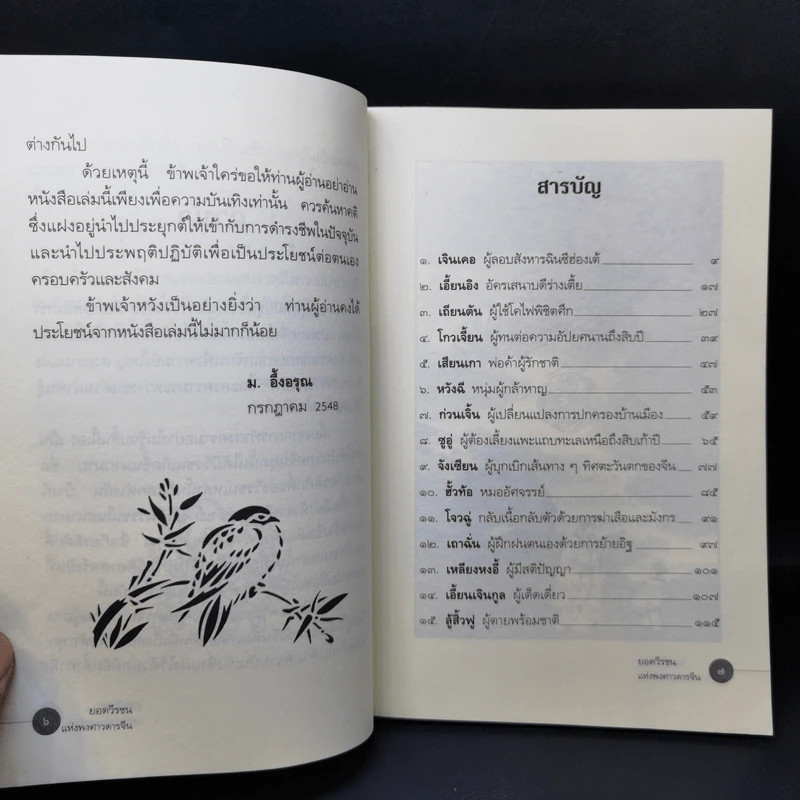 ต่างกันไป
ด้วยเหตุนี้ ข้าพเจ้าใคร่ขอให้ท่านผู้อ่านอย่าอ่าน
หนังสือเล่มนี้เพียงเพื่อความบันเทิงเท่านั้น ควรค้นหาคติ
ซึ่งแฝงอยู่นำไปประยุกต์ให้เข้ากับการดำรงชีพในปัจจุบัน
และนำไปประพฤติปฏิบัติเพื่อเป็นประโยชน์ต่อตนเอง
ครอบครัวและสังคม
ข้าพเจ้าหวังเป็นอย่างยิ่งว่า ท่านผู้อ่านคงได้
ประโยชน์จากหนังสือเล่มนี้ไม่มากก็น้อย
ม. อึ้งอรุณ
กรกฎาคม 2548
๖
ยอดวีรชน
แห่งพงศาวดารจีน
สารบัญ
๑. เจินเคอ ผู้ลอบสังหารฉินซีฮ่องเต้ ๙
๒. เอี้ยนอิง อัครเสนาบดีร่างเตี้ย ๑๗
๓. เถียนตัน ผู้ใช้โคไฟพิชิตศึก ๒๗
๔. โกวเจี้ยน ผู้ทนต่อความอัปยศนานถึงสิบปี ๓๙
๕. เสียนเกา พ่อค้าผู้รักชาติ ๔๗
๖. หวังฉี หนุ่มผู้กล้าหาญ ๕๓
๗. ก่วนเจิ้น ผู้เปลี่ยนแปลงการปกครองบ้านเมือง ๕๙
๘. ซูอู่ ผู้ต้องเลี้ยงแพะแถบทะเลเหนือถึงสิบเก้าปี ๖๕
๙. จังเซียน ผู้บุกเบิกเส้นทาง ๆ ทิศตะวันตกของจีน ๗๗
๑๐. ฮั้วท้อ หมออัศจรรย์ ๘๕
๑๑. โจวฉู่ กลับเนื้อกลับตัวด้วยการฆ่าเสือและมังกร ๙๑
๑๒. เถาฉั่น ผู้ฝึกฝนตนเองด้วยการย้ายอิฐ ๙๗
๑๓. เหลียงหงอี้ ผู้มีสติปัญญา ๑๐๑
๑๔. เอี้ยนเจินกูล ผู้เด็ดเดี่ยว ๑๐๗
๑๕. ลู้สิ้วฟู ผู้ตายพร้อมชาติ ๑๑๕
ยอดวีรชน
แห่งพงศาวดารจีน
๗